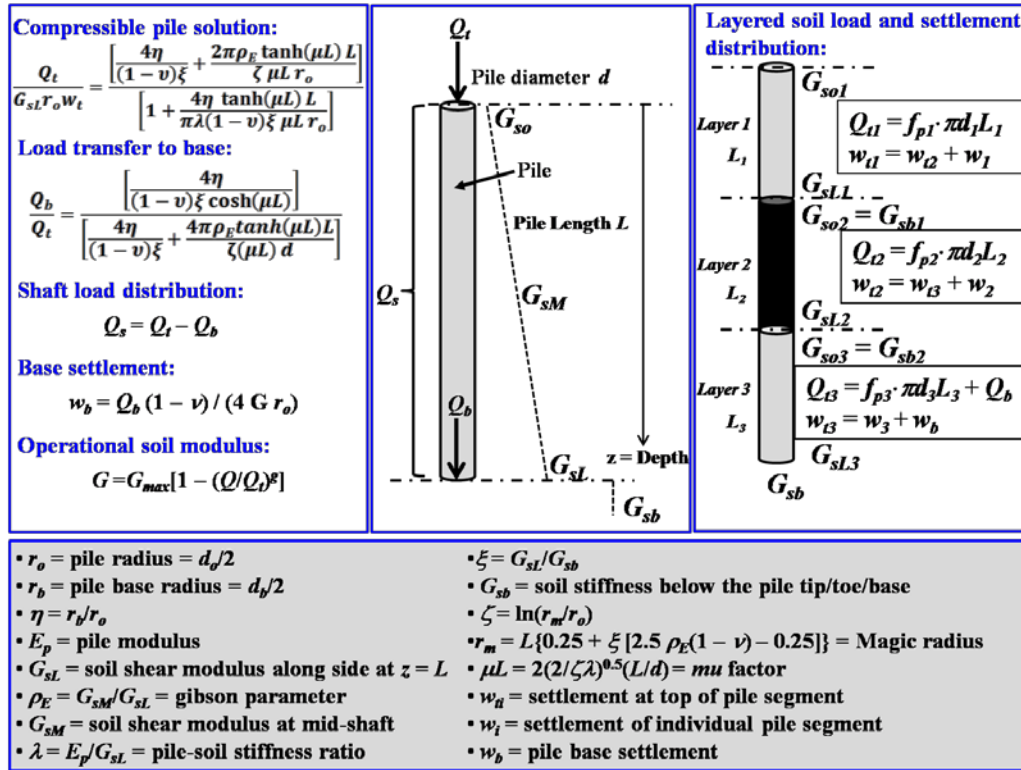 Compressible pile solution:
Q_t / (G_{sL} r_o w_t) = [4η/((1 − υ)ξ) + (2πρ_E tanh(μL) L)/(ζ μL r_o)] / [1 + (4η tanh(μL) L)/(πλ(1 − υ)ξ μL r_o)]
Load transfer to base:
Q_b/Q_t = [4η/((1 − υ)ξ cosh(μL))] / [4η/((1 − υ)ξ) + (4πρ_E tanh(μL)L)/(ζ(μL) d)]
Shaft load distribution:
Q_s = Q_t − Q_b
Base settlement:
w_b = Q_b (1 − ν) / (4 G r_o)
Operational soil modulus:
G = G_{max}[1 − (Q/Q_t)^g]
Q_t
Pile diameter d
G_{so}
Pile
Pile Length L
Q_s
G_{sM}
Q_b
z = Depth
G_{sL}
G_{sb}
Layered soil load and settlement
distribution:
G_{so1}
Layer 1
L_1
Q_{t1} = f_{p1}· πd_1L_1
w_{t1} = w_{t2} + w_1
G_{sL1}
G_{so2} = G_{sb1}
Layer 2
L_2
Q_{t2} = f_{p2}· πd_2L_2
w_{t2} = w_{t3} + w_2
G_{sL2}
G_{so3} = G_{sb2}
Layer 3
L_3
Q_{t3} = f_{p3}· πd_3L_3 + Q_b
w_{t3} = w_3 + w_b
G_{sL3}
G_{sb}
▪ r_o = pile radius = d_o/2
▪ r_b = pile base radius = d_b/2
▪ η = r_b/r_o
▪ E_p = pile modulus
▪ G_{sL} = soil shear modulus along side at z = L
▪ ρ_E = G_{sM}/G_{sL} = gibson parameter
▪ G_{sM} = soil shear modulus at mid-shaft
▪ λ = E_p/G_{sL} = pile-soil stiffness ratio
▪ ξ = G_{sL}/G_{sb}
▪ G_{sb} = soil stiffness below the pile tip/toe/base
▪ ζ = ln(r_m/r_o)
▪ r_m = L{0.25 + ξ [2.5 ρ_E(1 − ν) − 0.25]} = Magic radius
▪ μL = 2(2/ζλ)^{0.5}(L/d) = mu factor
▪ w_{ti} = settlement at top of pile segment
▪ w_i = settlement of individual pile segment
▪ w_b = pile base settlement